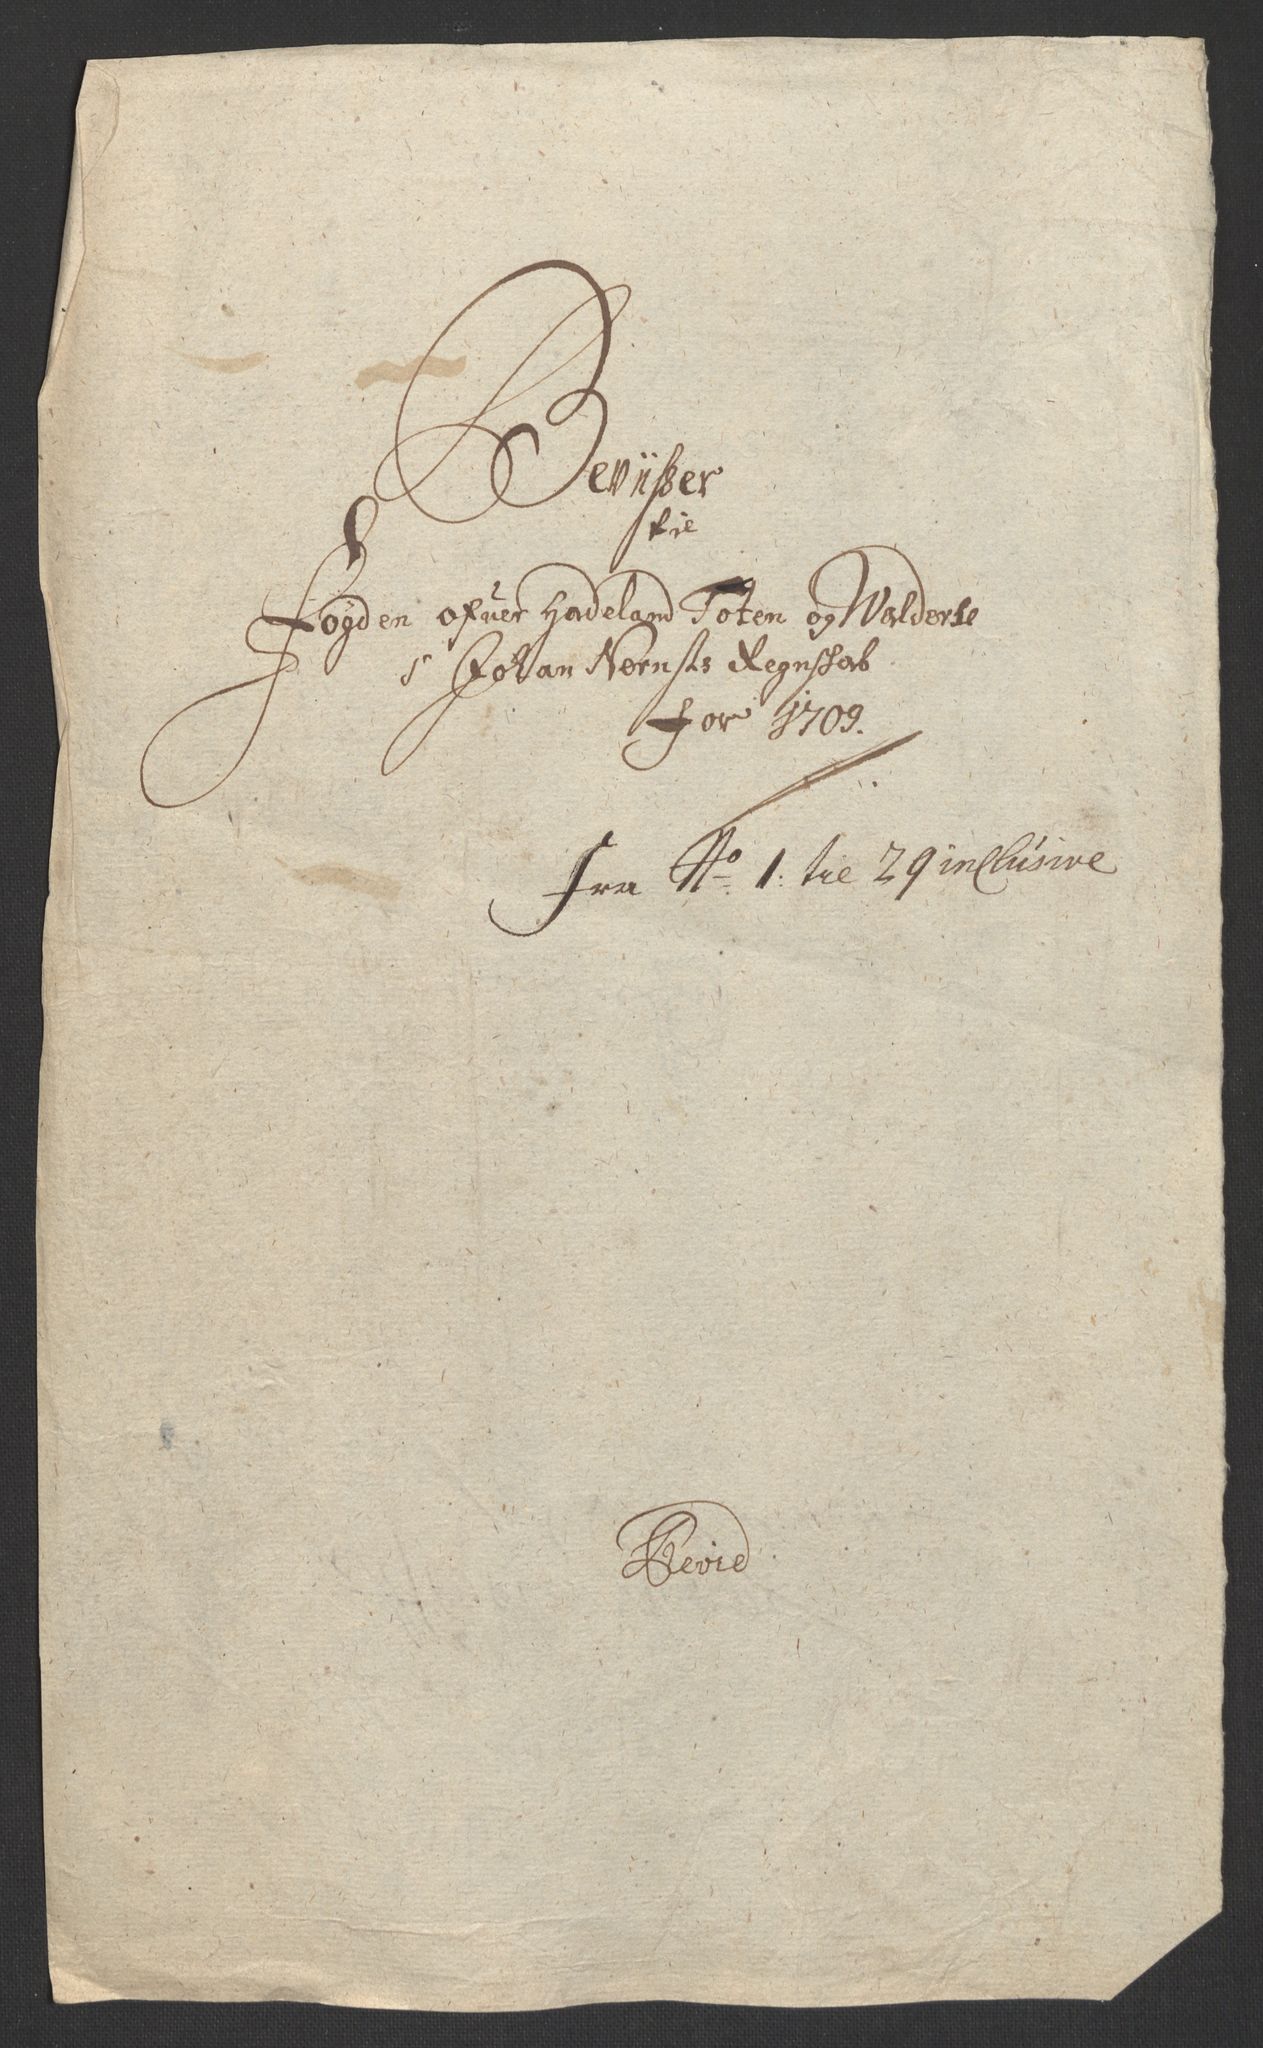 Beviisßer
til
Fogden ofuer Hadeland Toten og Walders
S Johan Nørnsts Regnskab
for 1709.
fra No. 1. til 29 inclusive
Revid